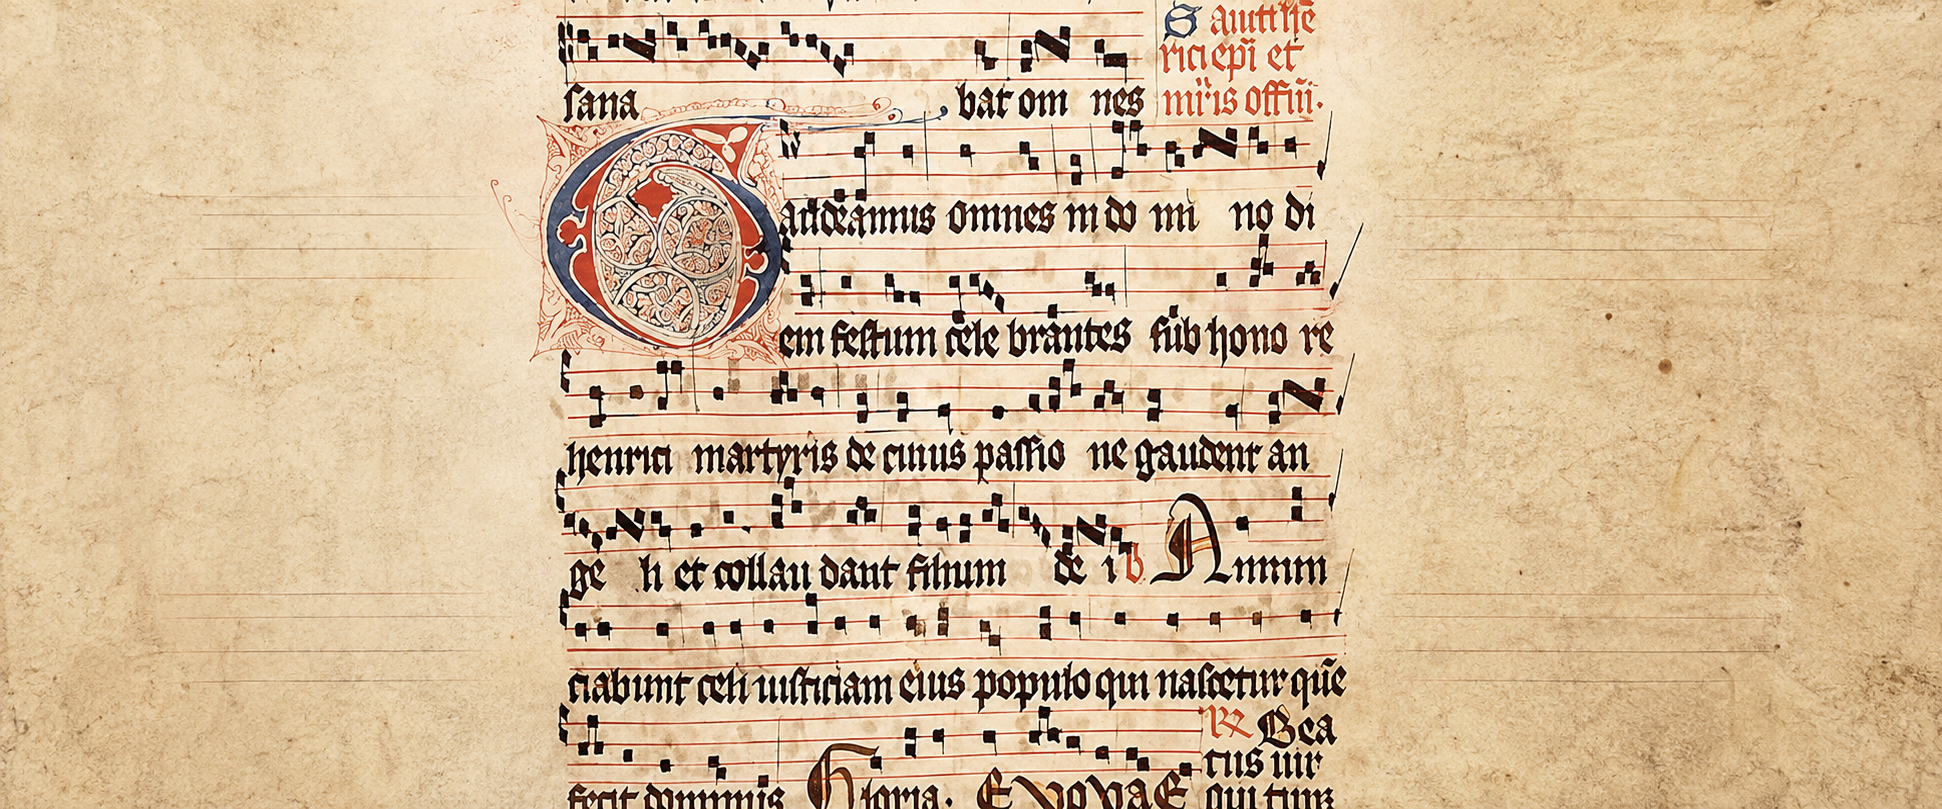 Sancti hē
rici epī et
sana bat om nes mr̄is offm̄.
Gaudeamus omnes in do mi no di
em festum cele brantes sub hono re
henrici martyris de cuius passio ne gaudent an
ge li et collau dant filium de i v Annun
ciabunt celi iusticiam eius populo qui nascetur quē
R Bea
tus uir
fecit dominus Gloria. Evovae qui timz